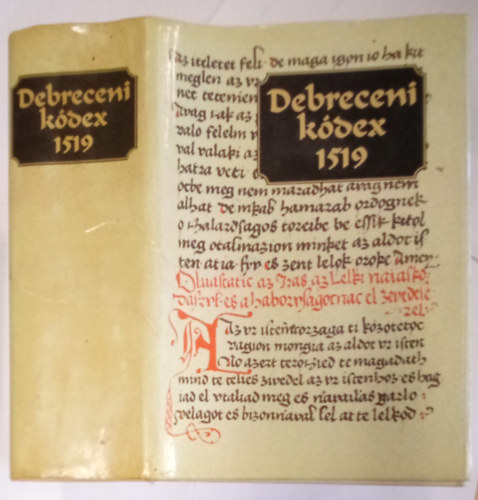 Debreceni
kódex
1519
Debreceni
kódex
1519
az iteletet feli de maga igon io ha kit
meglen az vr
net tetemen
Avag
valo felelm v
val valaki az
hatra veti
octbe meg nem maradhat avag nem
alhat de hamarab ordognek
o halardsagos torerbe be essik kitol
meg otalmazion minket az aldot is
ten atia fyv es zent lelok oroke Amen
Oluastatic az Iras az Lelki
es a haborysagocnac el
az vr isten orzaga ti közötetöc
vagion mongia az aldot vr isten
No azert terohied te magadath
mind te telies zwedel az vr istenhoz es hag
iad el vtaliad meg es navalias
velagot es bizonnaval lel at te lelkod